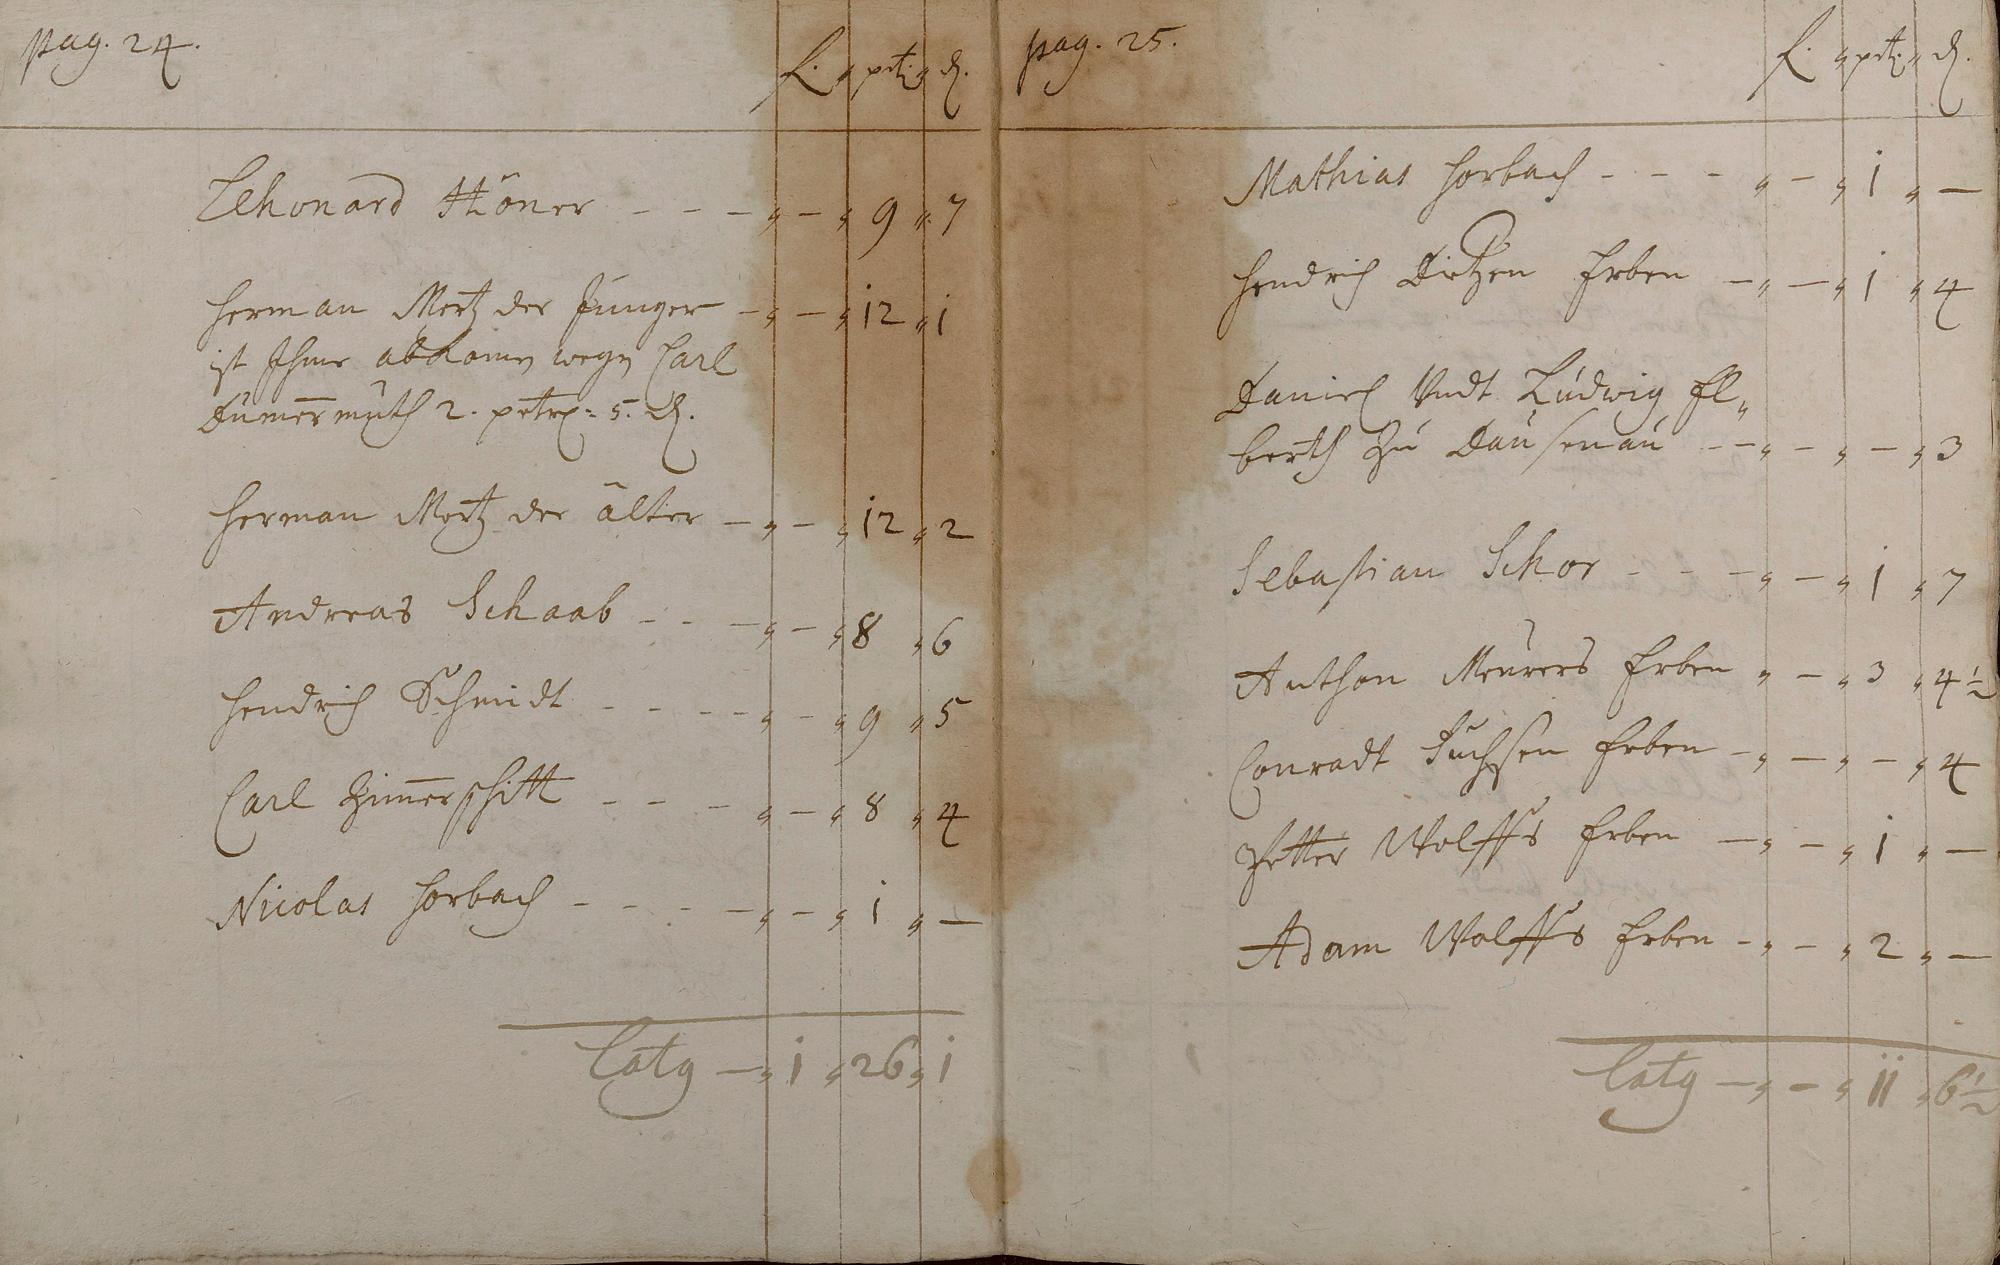 pag. 24.
fl. „ petr: „ d.
Lehonard Höner - - - „ – „ 9 „ 7
Herman Mertz der Junger – „ – „ 12 „ 1
ist Ihme abkomen wegen Carl
Dumermuth 2. petr: 5. d.
Herman Mertz der älter – „ – „ 12 „ 2
Andreas Schaab - - - „ – „ 8 „ 6
Hendrich Schmidt - - - - „ – „ 9 „ 5
Carl Zimerschitt - - - „ – „ 8 „ 4
Nicolas Horbach - - - - „ – „ 1 „ –
Latg – „ 1 „ 26 „ 1
pag. 25.
fl. „ petr: „ d.
Mathias Horbach - - - - „ – „ 1 „ –
Hendrich Dietzen Erben – „ – „ 1 „ 4
Daniel Undt Ludwig El„
berth Zu Dausenau - - „ – „ – „ 3
Sebastian Schor - - - „ – „ 1 „ 7
Anthon Meurers Erben „ – „ 3 „ 4½
Conradt Fuchsen Erben – „ – „ – „ 4
Petter Wolffs Erben – „ – „ 1 „ –
Adam Wolffs Erben – „ – „ 2 „ –
Latg – „ – „ 11 „ 6½